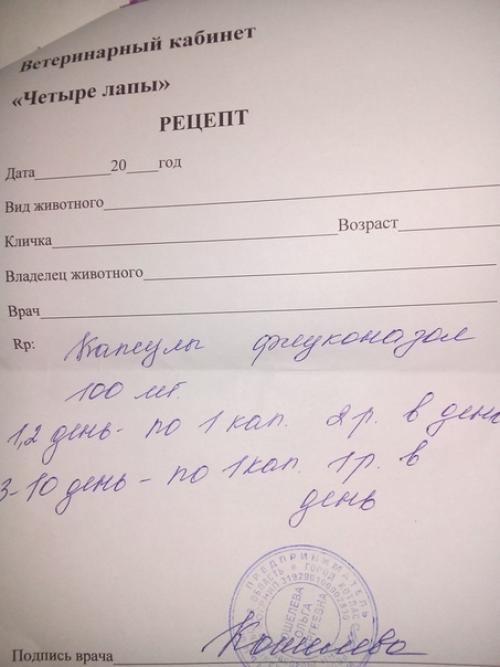 Ветеринарный кабинет
«Четыре лапы»
РЕЦЕПТ
Дата 20 год
Вид животного
Кличка Возраст
Владелец животного
Врач
Rp: Капсулы флуконазол
100 мг.
1,2 день - по 1 кап. 2 р. в день
3-10 день - по 1 кап. 1 р. в
день
ПРЕДПРИНИМАТЕЛЬ
ГОРОД КОТЛАС
ОЛЬГА
Подпись врача Кошелева